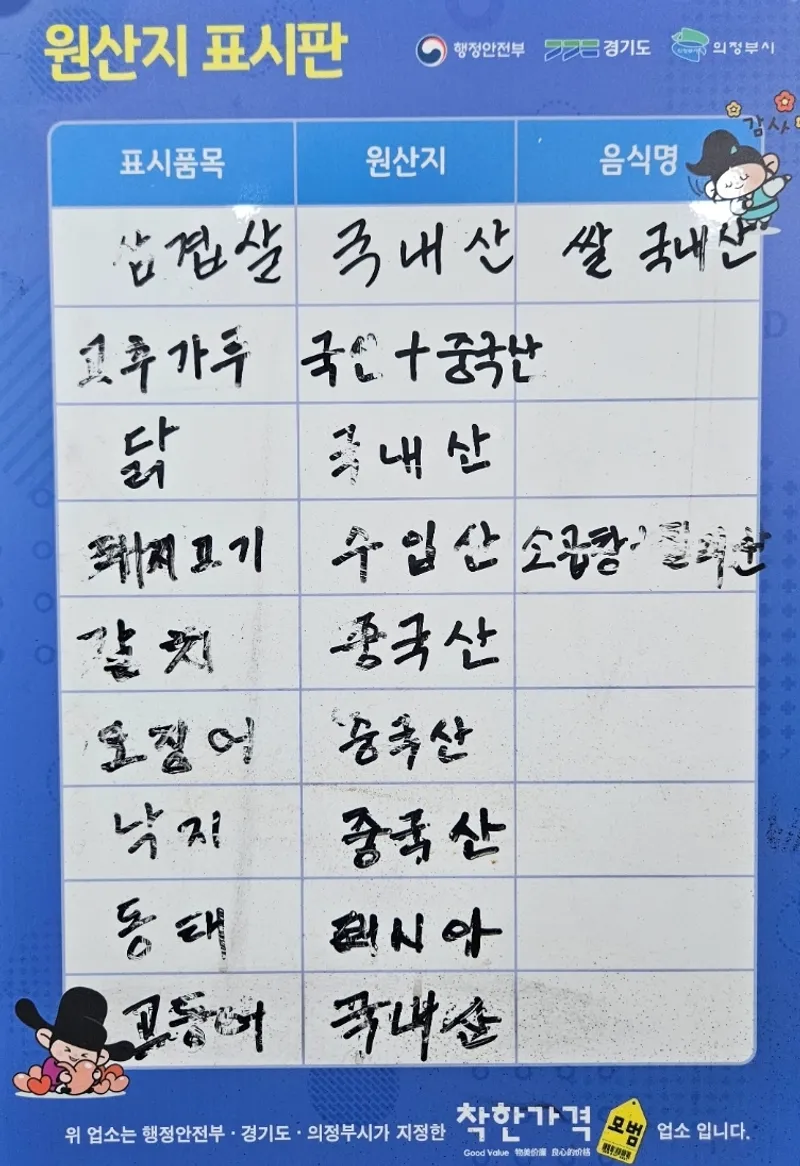 원산지 표시판
행정안전부 경기도 의정부시
감사
표시품목 원산지 음식명
삼겹살 국내산 쌀 국내산
고추가루 + 중국산
닭 국내산
돼지고기 수입산
갈치 중국산
오징어 중국산
낙지 중국산
동태 러시아
고등어 국내산
위 업소는 행정안전부 · 경기도 · 의정부시가 지정한 착한가격 모범 업소 입니다.
Good Value 物美价廉 良心的价格